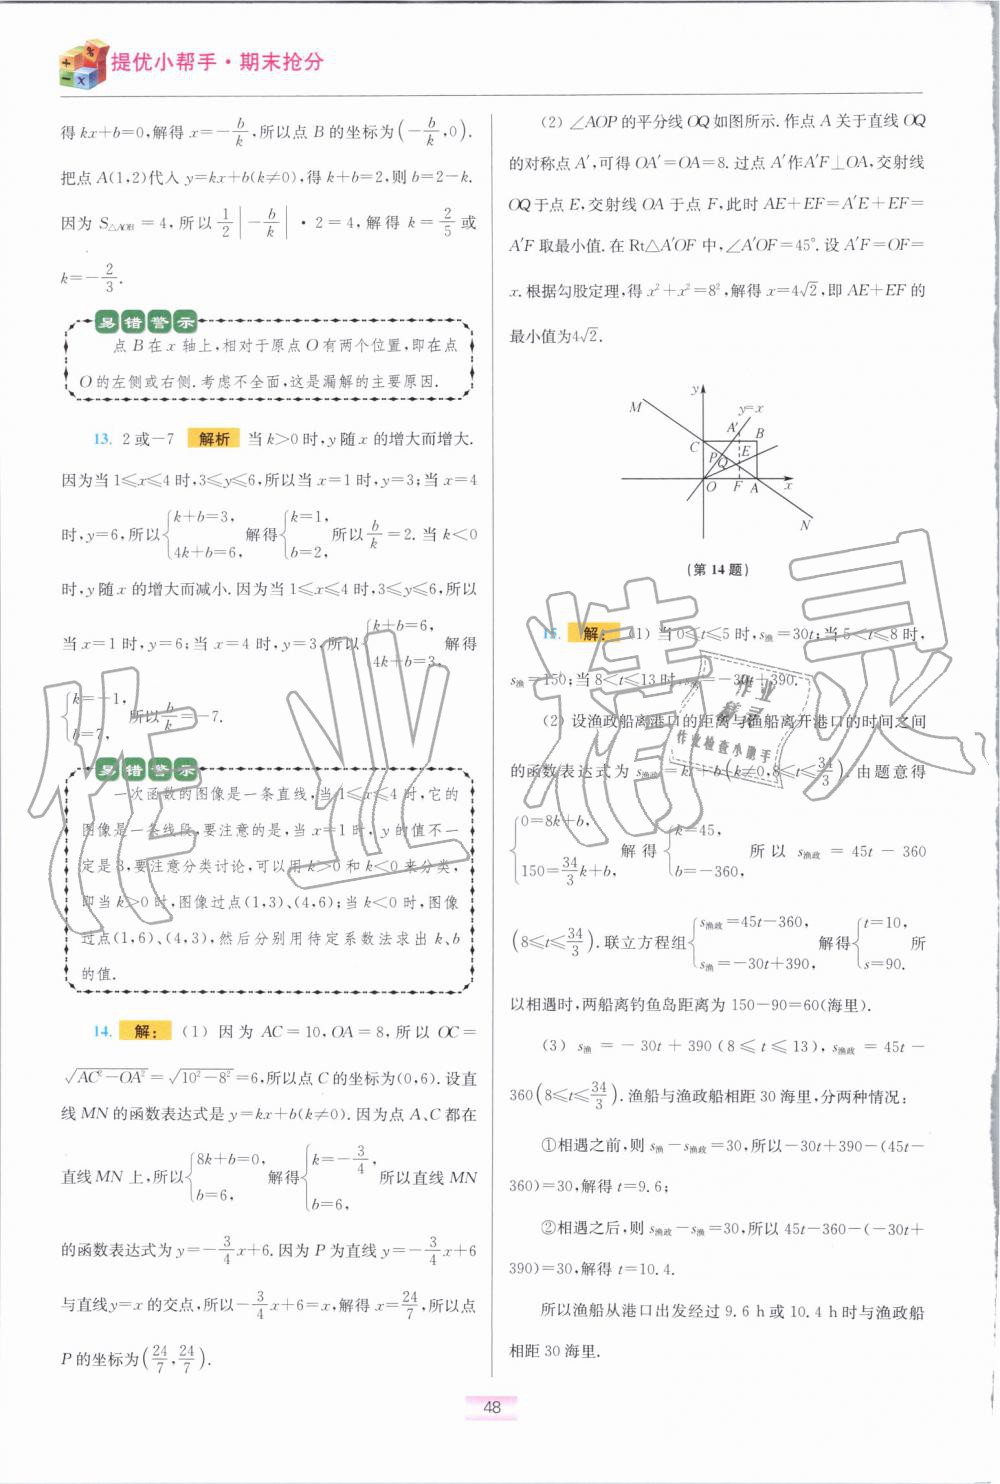 提优小帮手·期末抢分
得kx+b=0,解得x=-b/k,所以点B的坐标为(-b/k,0).
把点A(1,2)代入y=kx+b(k≠0),得k+b=2,则b=2-k.
因为S△AOB=4,所以1/2|-b/k|·2=4,解得k=2/5或
k=-2/3.
易错警示
点B在x轴上,相对于原点O有两个位置,即在点
O的左侧或右侧.考虑不全面,这是漏解的主要原因.
13. 2或-7 解析 当k>0时,y随x的增大而增大.
因为当1≤x≤4时,3≤y≤6,所以当x=1时,y=3;当x=4
时,y=6,所以{k+b=3, 4k+b=6, 解得{k=1, b=2, 所以b/k=2.当k<0
时,y随x的增大而减小.因为当1≤x≤4时,3≤y≤6,所以
当x=1时,y=6;当x=4时,y=3,所以{k+b=6, 4k+b=3, 解得
{k=-1, b=7, 所以b/k=-7.
易错警示
一次函数的图像是一条直线,当1≤x≤4时,它的
图像是一条线段,要注意的是,当x=1时,y的值不一
定是3,要注意分类讨论,可以用k>0和k<0来分类,
即当k>0时,图像过点(1,3)、(4,6);当k<0时,图像
过点(1,6)、(4,3),然后分别用待定系数法求出k、b
的值.
14. 解: (1) 因为AC=10,OA=8,所以OC=
√(AC²-OA²)=√(10²-8²)=6,所以点C的坐标为(0,6).设直
线MN的函数表达式是y=kx+b(k≠0).因为点A、C都在
直线MN上,所以{8k+b=0, b=6, 解得{k=-3/4, b=6, 所以直线MN
的函数表达式为y=-3/4x+6.因为P为直线y=-3/4x+6
与直线y=x的交点,所以-3/4x+6=x,解得x=24/7,所以点
P的坐标为(24/7,24/7).
(2) ∠AOP的平分线OQ如图所示.作点A关于直线OQ
的对称点A′,可得OA′=OA=8.过点A′作A′F⊥OA,交射线
OQ于点E,交射线OA于点F,此时AE+EF=A′E+EF=
A′F取最小值.在Rt△A′OF中,∠A′OF=45°.设A′F=OF=
x.根据勾股定理,得x²+x²=8²,解得x=4√2,即AE+EF的
最小值为4√2.
y
M
y=x
A′
B
C
P
E
Q
O
F
A
x
N
(第14题)
15. 解: (1) 当0≤t≤5时,s渔=30t;当5<t≤8时,
s渔=150;当8<t≤13时,s渔=-30t+390.
(2) 设渔政船离港口的距离与渔船离开港口的时间之间
的函数表达式为s渔政=kt+b(k≠0,8≤t≤34/3).由题意得
{0=8k+b, 150=34/3k+b, 解得{k=45, b=-360, 所以s渔政=45t-360
(8≤t≤34/3).联立方程组{s渔政=45t-360, s渔=-30t+390, 解得{t=10, s=90. 所
以相遇时,两船离钓鱼岛距离为150-90=60(海里).
(3) s渔=-30t+390(8≤t≤13),s渔政=45t-
360(8≤t≤34/3).渔船与渔政船相距30海里,分两种情况:
①相遇之前,则s渔-s渔政=30,所以-30t+390-(45t-
360)=30,解得t=9.6;
②相遇之后,则s渔政-s渔=30,所以45t-360-(-30t+
390)=30,解得t=10.4.
所以渔船从港口出发经过9.6 h或10.4 h时与渔政船
相距30海里.
作业精灵
作业
精灵
作业检查小助手
48